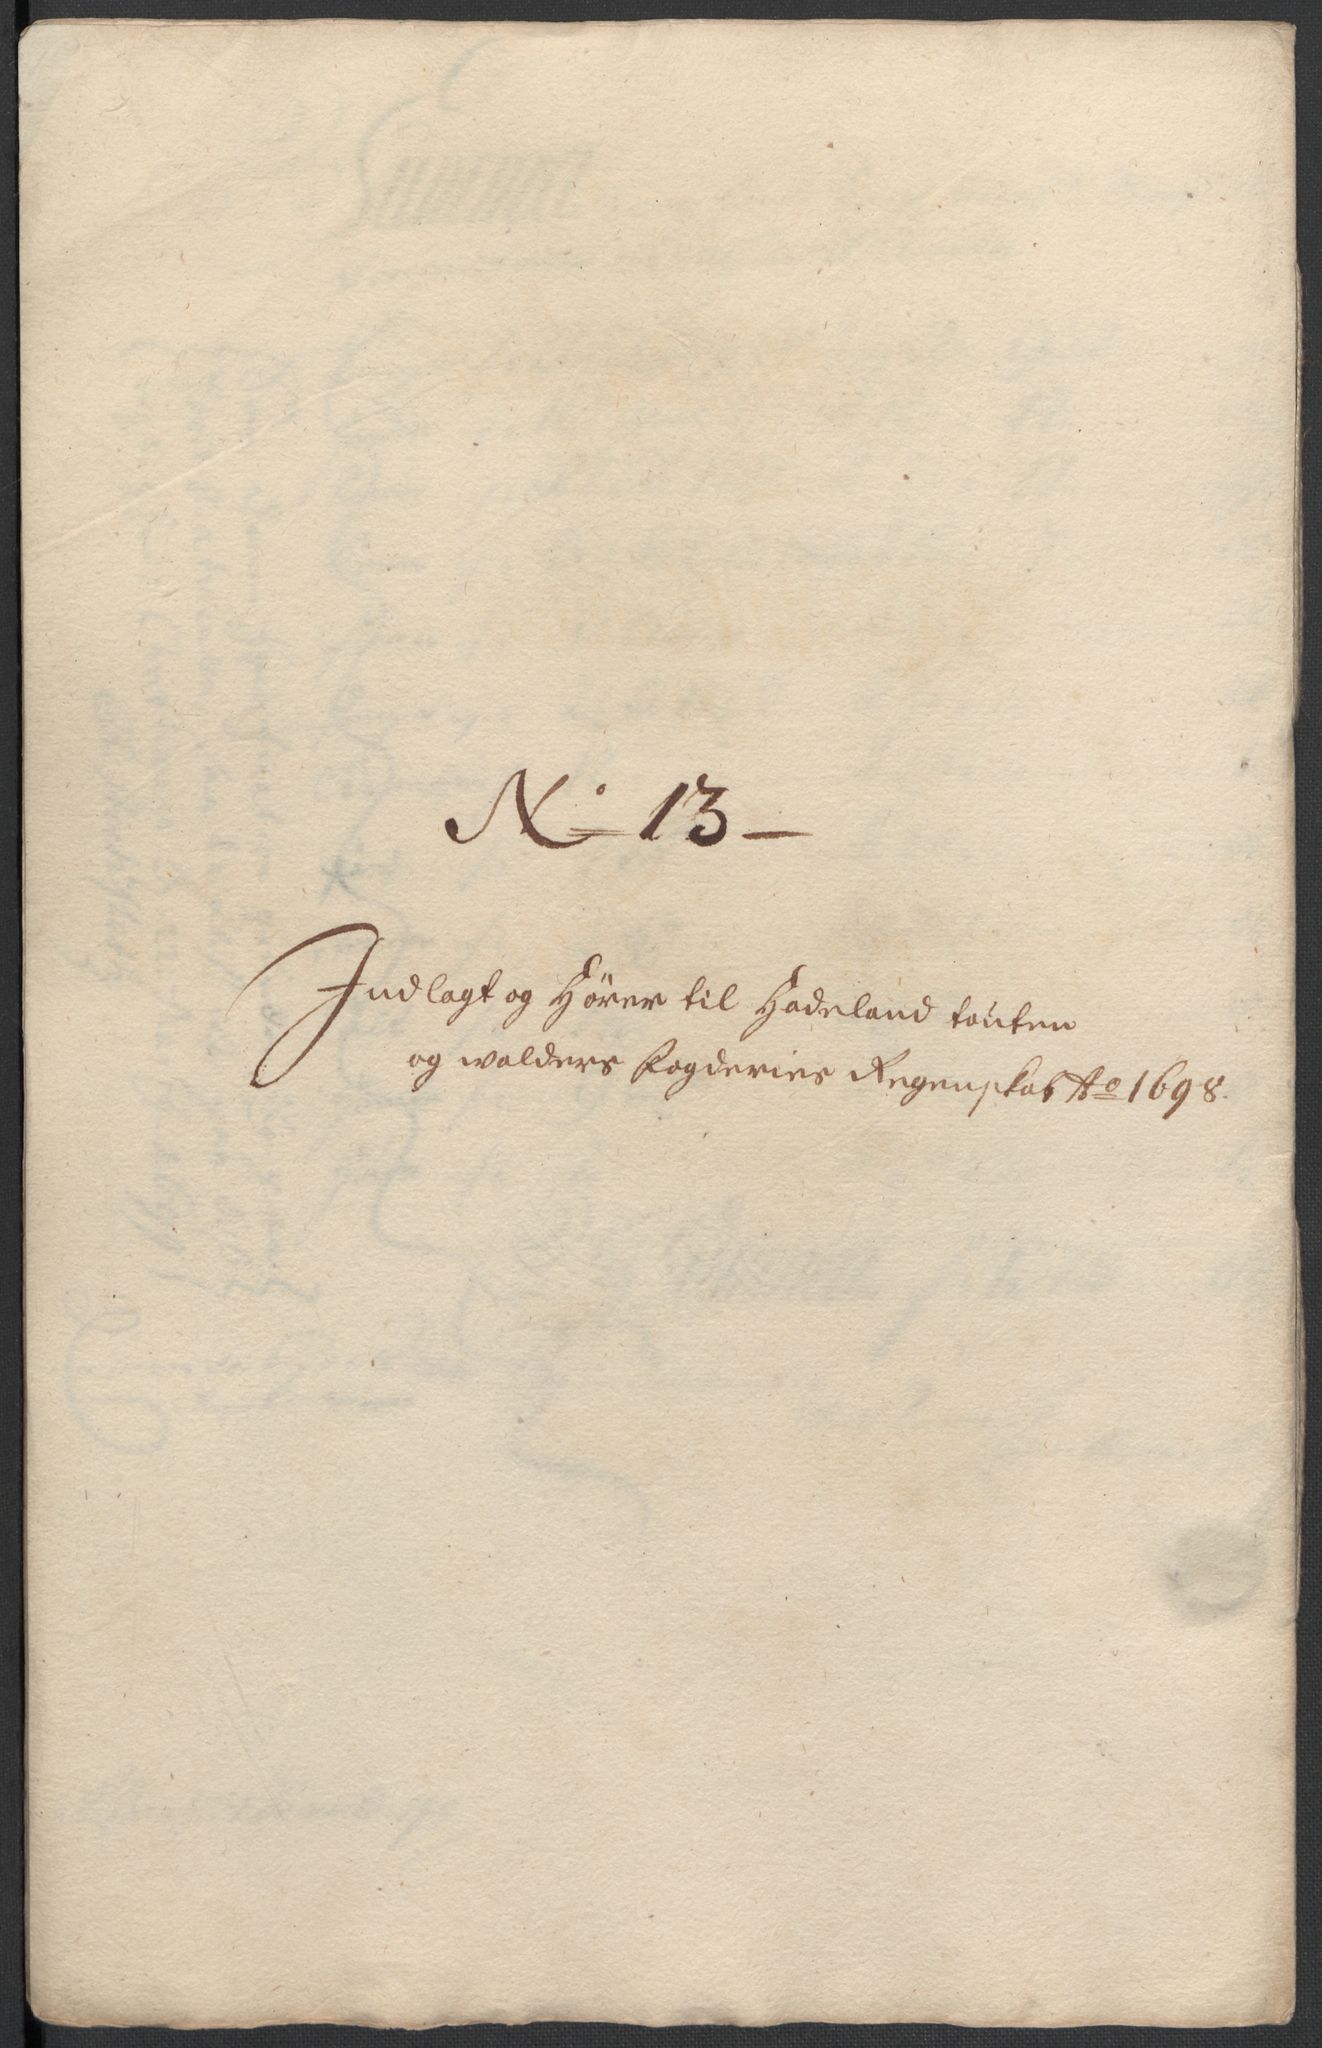 No 13
Indlagt og Hører til Hadeland touten
og walders Fogderies Regenskab Ao 1698.